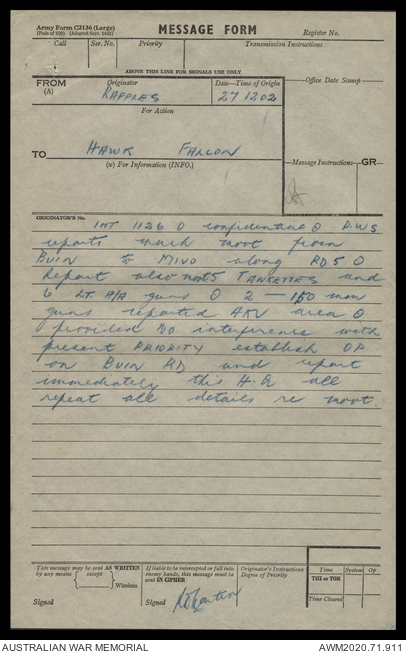 Army Form C2136 (Large)
MESSAGE FORM
Register No.
Call
Ser. No.
Priority
Transmission Instructions
ABOVE THIS LINE FOR SIGNALS USE ONLY
FROM
(A)
Originator
Date—Time of Origin
Office Date Stamp
RAFFLES
271202
For Action
TO
HAWK FALCON
(w) For Information (INFO.)
Message Instructions
GR
ORIGINATOR'S No.
INT 1126 O confidential O P.W's
reports much mort from
BUIN to MIVO along RDS O
Report also notes TANKETTES and
6 LT. A/A guns O 2 — 150 mm
guns reported area O
provided NO interference with
present PRIORITY establish OP
on BUIN RD and report
immediately this H.Q all
repeat all details re mort.
This message may be sent AS WRITTEN
by any means
except
Wireless
If liable to be intercepted or fall into
enemy hands, this message must be
sent IN CIPHER
Originator's Instructions
Degree of Priority
Time
System
Op
THI or TOR
Time Cleared
Signed
Signed
AUSTRALIAN WAR MEMORIAL
AWM2020.71.911